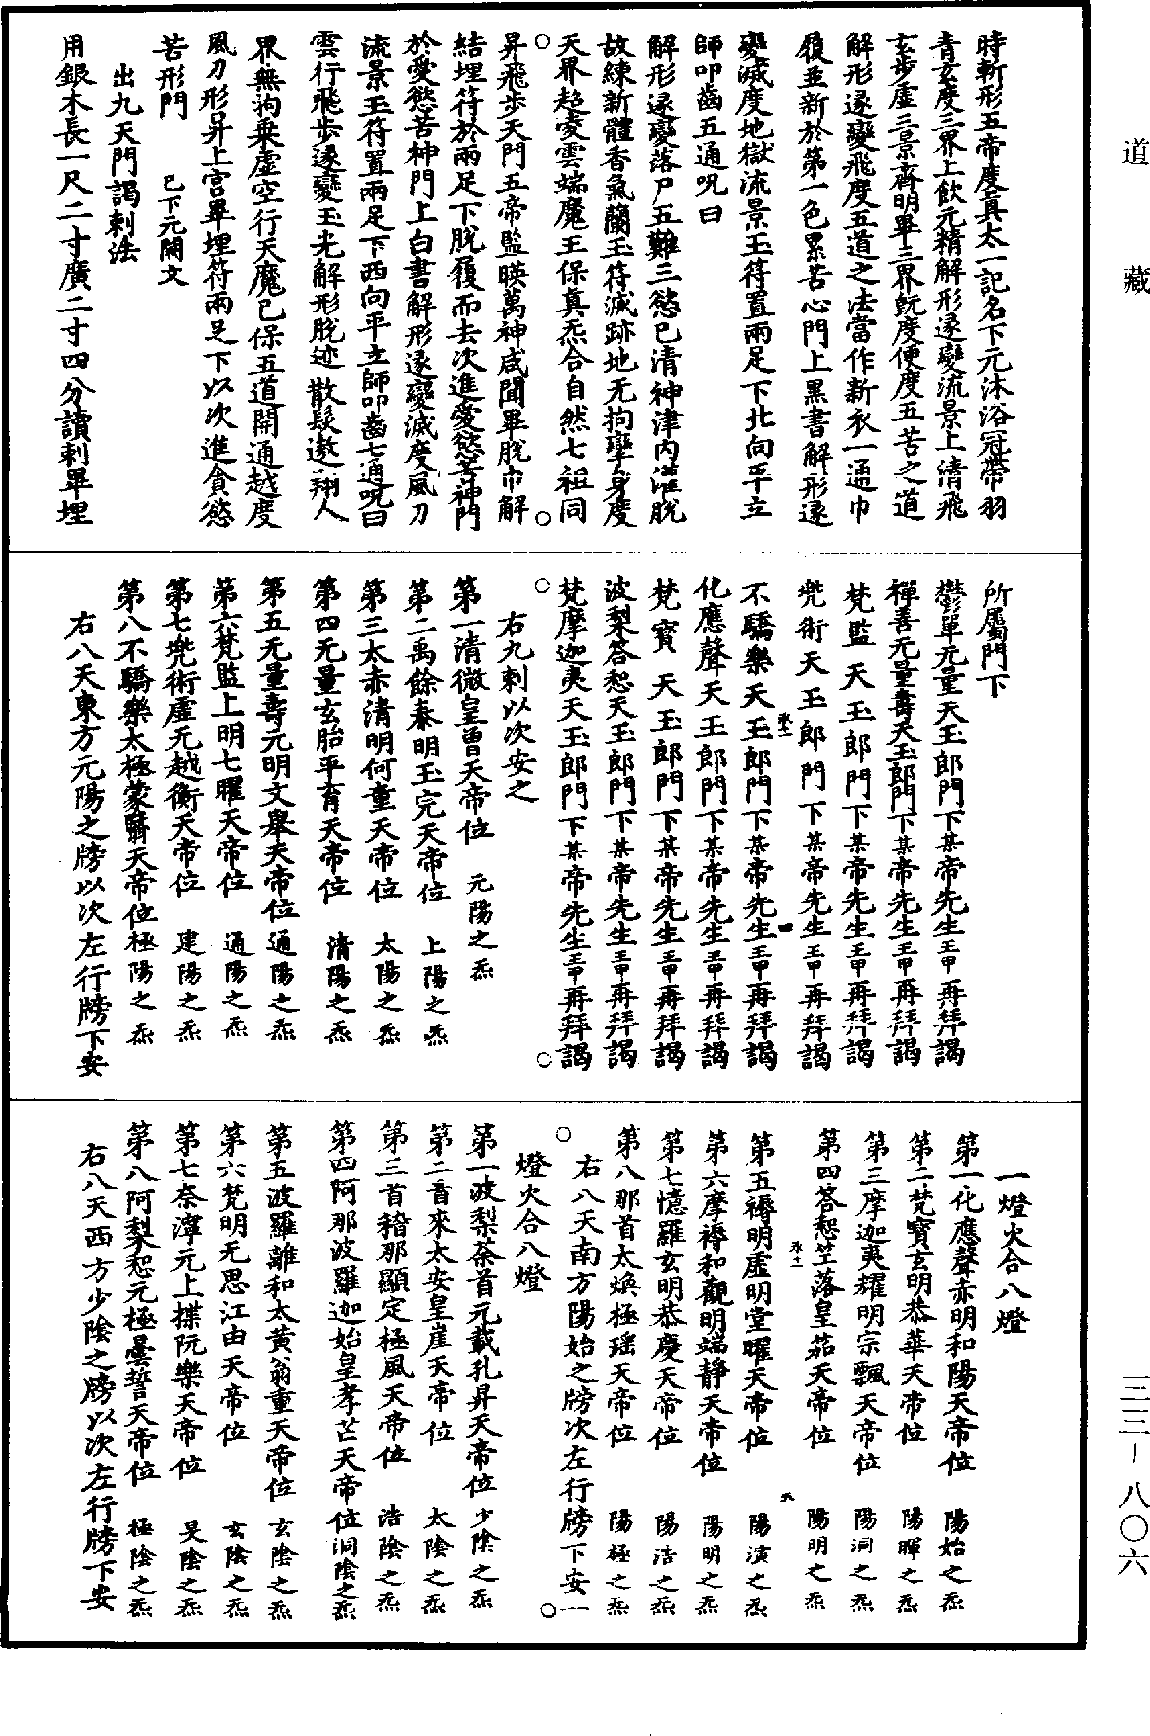 道藏
三三－八〇六
時斬形五帝度真太一記名下元沐浴冠帶羽
青玄度三界上飲元精解形遂變流景上清飛
玄步虛三景齊明畢三界旣度便度五苦之道
解形遂變飛度五道之法當作新衣一通巾
履並新於第一色累苦心門上黑書解形遂
變滅度地獄流景玉符置兩足下北向平立
師叩齒五通呪曰
解形遂變落尸五難三慾已清神津內灌脫
故練新體香氣蘭玉符滅跡地无拘攣身度
天界超凌雲端魔王保真炁合自然七祖同
昇飛步天門五帝監暎萬神咸聞畢脫巾解
結埋符於兩足下脫履而去次進愛慾苦神門
於愛慾苦神門上白書解形遂變滅度風刀
流景玉符置兩足下西向平立師叩齒七通呪曰
雲行飛步遂變玉光解形脫迹散髮遨翔人
界無拘乗虛空行天魔已保五道開通越度
風刀形昇上宮畢埋符兩足下以次進貪慾
苦形門 已下元闕文
出九天門謁刺法
用銀木長一尺二寸廣二寸四分讀刺畢埋
所屬門下
鬱單无量天玉郎門下某帝先生王甲再拜謁
禪善无量壽天玉郎門下某帝先生王甲再拜謁
梵監天玉郎門下某帝先生王甲再拜謁
兠術天玉郎門下某帝先生王甲再拜謁
不驕樂天玉郎門下某帝先生王甲再拜謁
化應聲天玉郎門下某帝先生王甲再拜謁
梵寶天玉郎門下某帝先生王甲再拜謁
波梨答恕天玉郎門下某帝先生王甲再拜謁
梵摩迦夷天玉郎門下某帝先生王甲再拜謁
右九刺以次安之
第一清微皇曾天帝位 元陽之炁
第二禹餘泰明玉完天帝位 上陽之炁
第三太赤清明何童天帝位 太陽之炁
第四无量玄胎平育天帝位 清陽之炁
第五无量壽元明文舉天帝位 通陽之炁
第六梵監上明七曜天帝位 通陽之炁
第七兠術虛元越衡天帝位 建陽之炁
第八不驕樂太極蒙翳天帝位 極陽之炁
右八天東方元陽之牓以次左行牓下安
一燈火合八燈
第一化應聲赤明和陽天帝位 陽始之炁
第二梵寶玄明恭華天帝位 陽暉之炁
第三摩迦夷耀明宗飄天帝位 陽洞之炁
第四答恕竺落皇笳天帝位 陽明之炁
第五褥明虛明堂曜天帝位 陽演之炁
第六摩褥和觀明端靜天帝位 陽明之炁
第七憶羅玄明恭慶天帝位 陽浩之炁
第八那首太煥極瑤天帝位 陽極之炁
右八天南方陽始之牓次左行牓下安一
燈火合八燈
第一波梨荼首元載孔昇天帝位 少陰之炁
第二音來太安皇崖天帝位 太陰之炁
第三首稽那顯定極風天帝位 浩陰之炁
第四阿那波羅迦始皇孝芒天帝位 洞陰之炁
第五波羅離和太黃翁重天帝位 玄陰之炁
第六梵明无思江由天帝位 玄陰之炁
第七奈渖元上揲阮樂天帝位 旻陰之炁
第八阿梨恕元極曇誓天帝位 極陰之炁
右八天西方少陰之牓以次左行牓下安